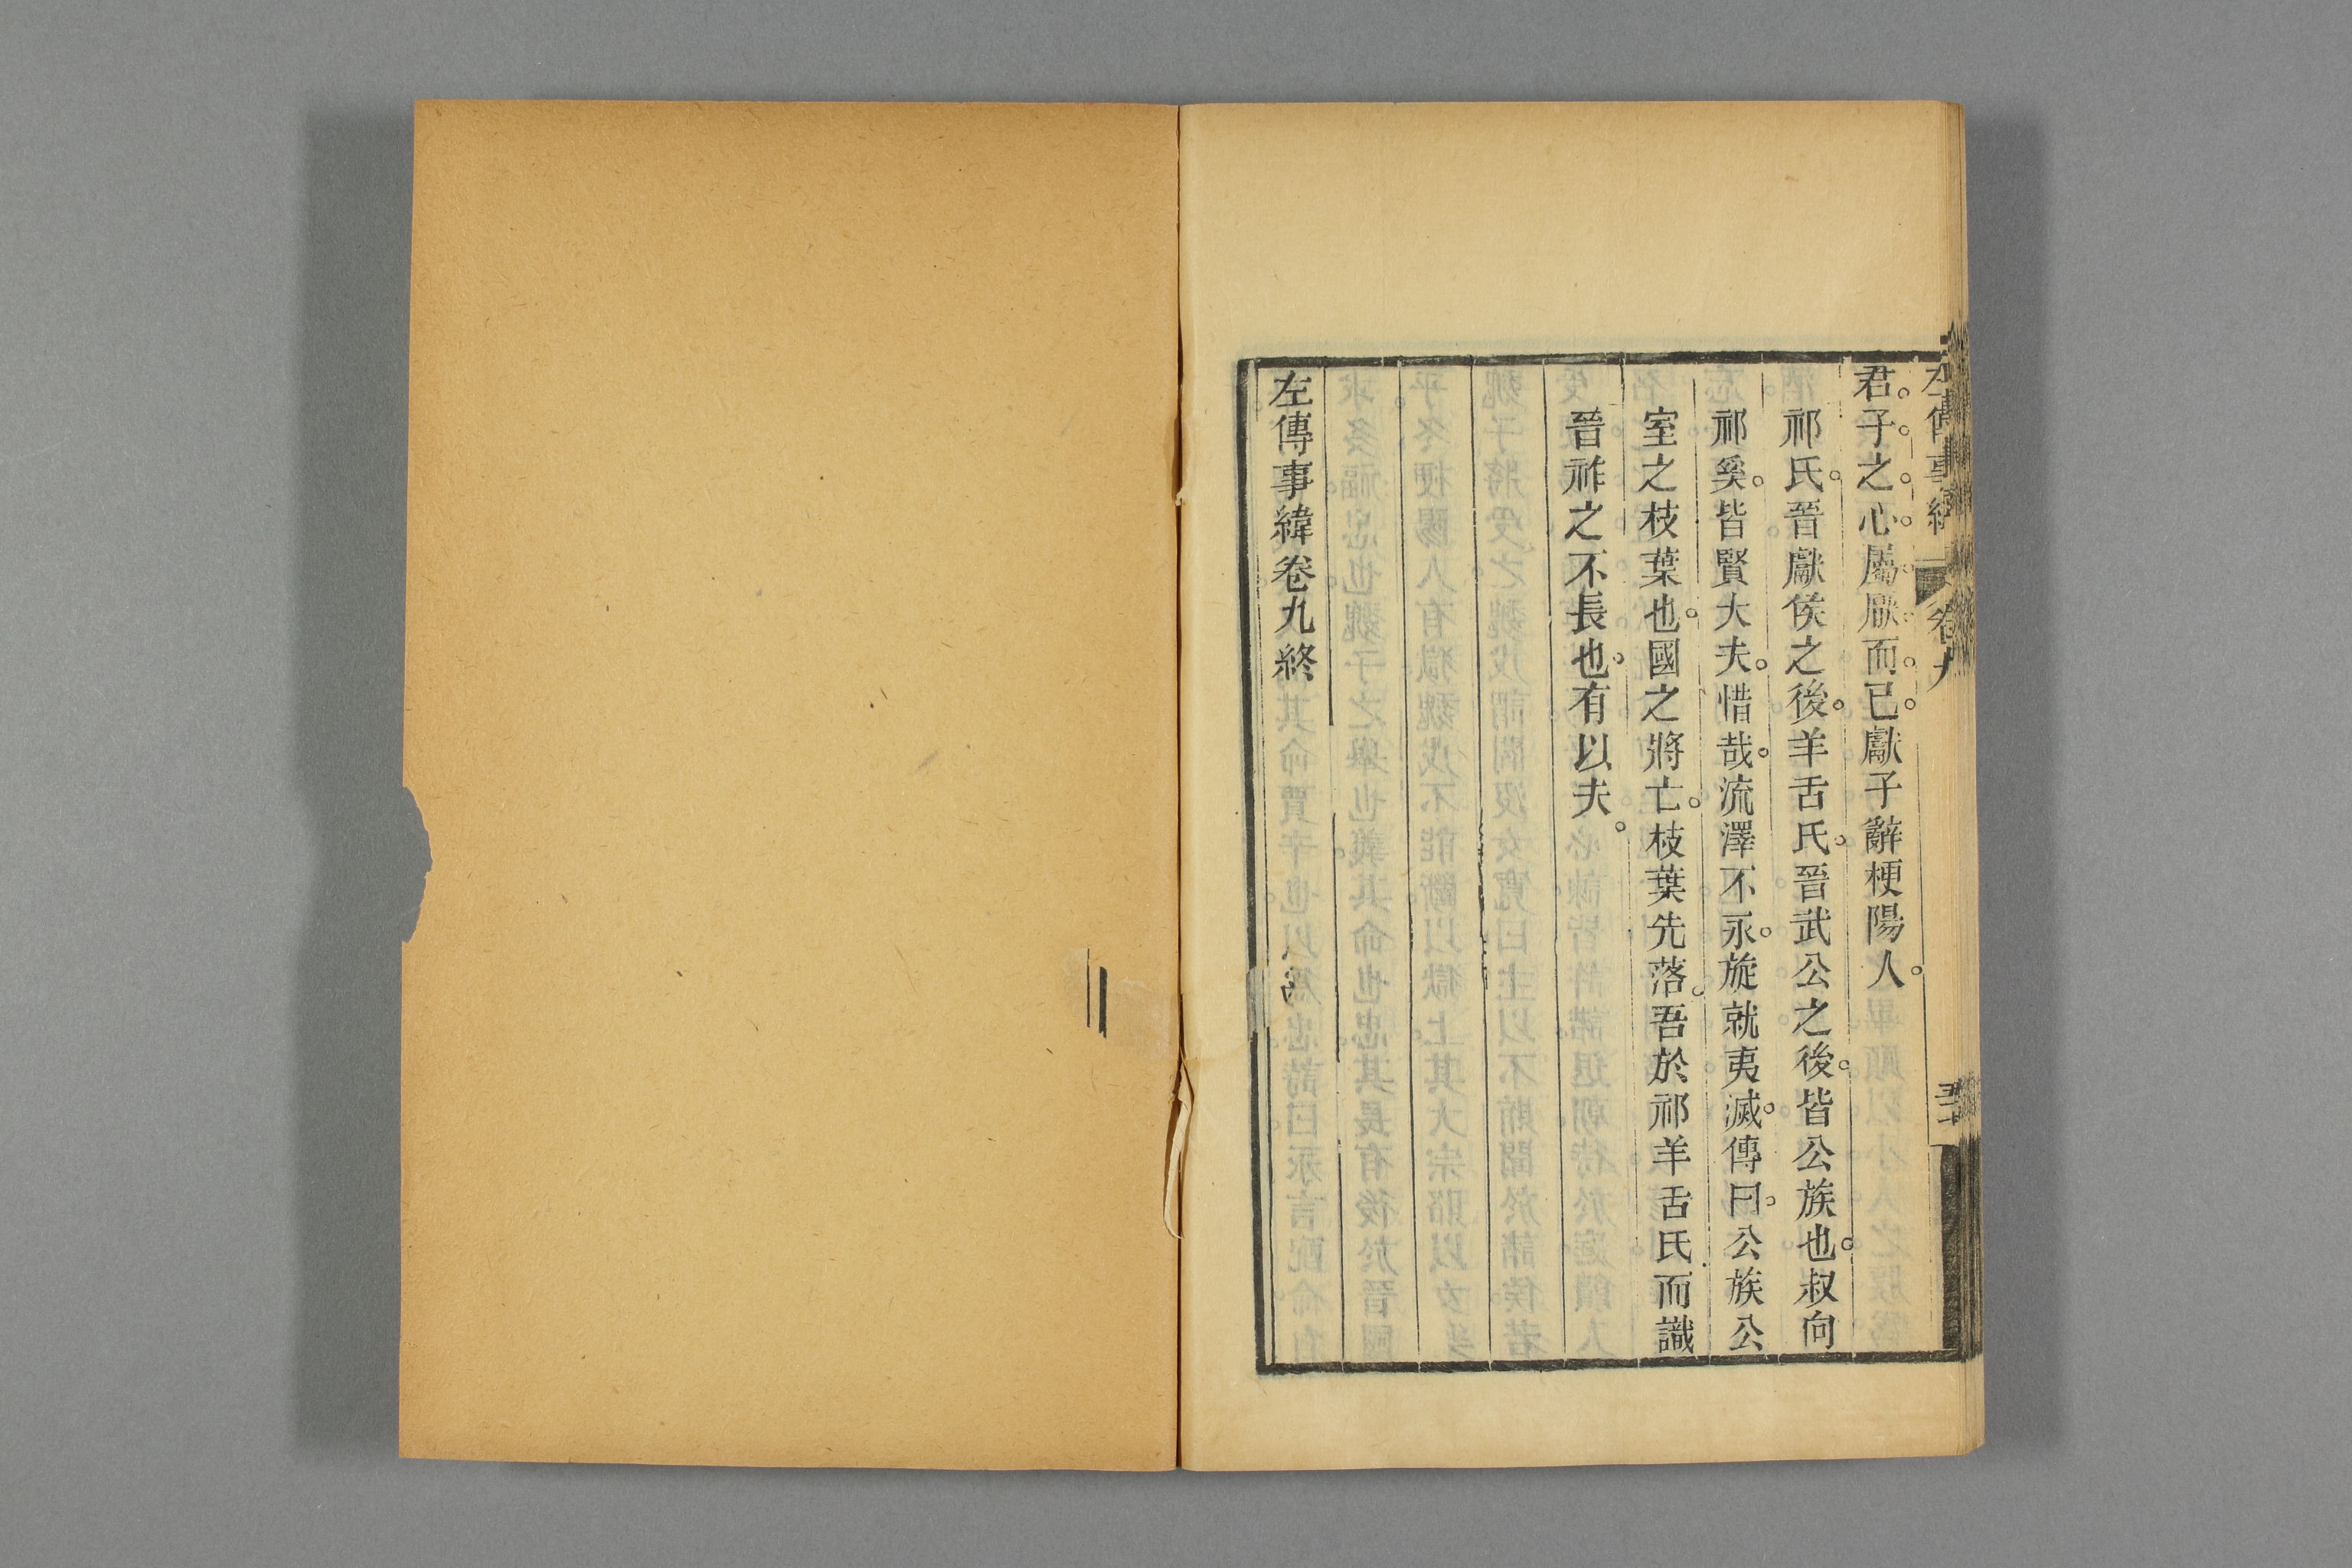 君子之心屬厭而已獻子辭梗陽人
祁氏晉獻侯之後羊舌氏晉武公之後皆公族也叔向
祁奚皆賢大夫惜哉流澤不永旋就夷滅傳曰公族公
室之枝葉也國之將亡枝葉先落吾於祁羊舌氏而識
晉祚之不長也有以夫
左傳事緯卷九終